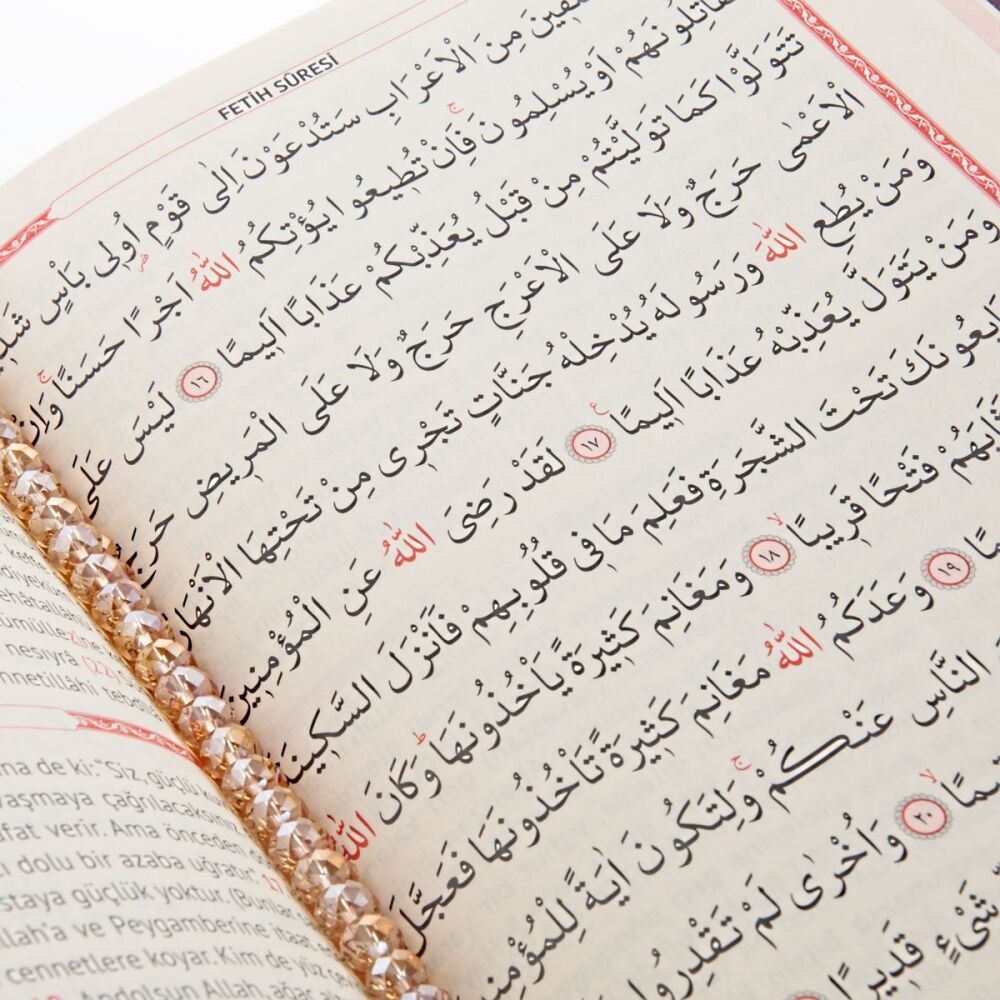 FETİH SÛRESİ
مِنَ الْاَعْرَابِ سَتُدْعَوْنَ اِلٰى قَوْمٍ اُولٖى بَاْسٍ
اَوْ يُسْلِمُونَ فَاِنْ تُطٖيعُوا يُؤْتِكُمُ اللّٰهُ اَجْرًا حَسَنًا وَاِنْ
تَتَوَلَّوْا كَمَا تَوَلَّيْتُمْ مِنْ قَبْلُ يُعَذِّبْكُمْ عَذَابًا اَلٖيمًا ١٦ لَيْسَ عَلَى
الْاَعْمٰى حَرَجٌ وَلَا عَلَى الْاَعْرَجِ حَرَجٌ وَلَا عَلَى الْمَرٖيضِ حَرَجٌ
وَمَنْ يُطِعِ اللّٰهَ وَرَسُولَهُ يُدْخِلْهُ جَنَّاتٍ تَجْرٖى مِنْ تَحْتِهَا الْاَنْهَارُ
وَمَنْ يَتَوَلَّ يُعَذِّبْهُ عَذَابًا اَلٖيمًا ١٧ لَقَدْ رَضِىَ اللّٰهُ عَنِ الْمُؤْمِنٖينَ
تَحْتَ الشَّجَرَةِ فَعَلِمَ مَا فٖى قُلُوبِهِمْ فَاَنْزَلَ السَّكٖينَةَ
فَتْحًا قَرٖيبًا ١٨ وَمَغَانِمَ كَثٖيرَةً يَاْخُذُونَهَا وَكَانَ اللّٰهُ
١٩ وَعَدَكُمُ اللّٰهُ مَغَانِمَ كَثٖيرَةً تَاْخُذُونَهَا فَعَجَّلَ
النَّاسِ عَنْكُمْ وَلِتَكُونَ اٰيَةً لِلْمُؤْمِنٖينَ
٢٠ وَاُخْرٰى لَمْ تَقْدِرُوا
شَىْءٍ قَدٖيرًا
nesıyrâ (22)
de ki: "Siz, güçlü
çağrılacaksınız
verir. Ama önceden
dolu bir azaba uğratır." 17
güçlük yoktur. (Bunlar
ve Peygamberine itaat
cennetlere koyar. Kim de yüz
Andolsun Allah, ağaç